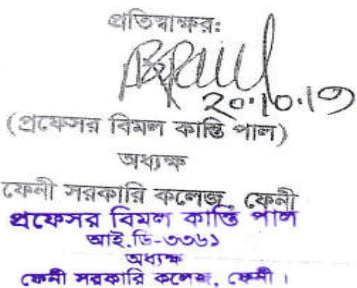 প্রতিস্বাক্ষর:
২০.১০.১৩
(প্রফেসর বিমল কান্তি পাল)
অধ্যক্ষ
ফেনী সরকারি কলেজ, ফেনী
প্রফেসর বিমল কান্তি পাল
আই.ডি-৩৩৬১
অধ্যক্ষ
ফেনী সরকারি কলেজ, ফেনী।